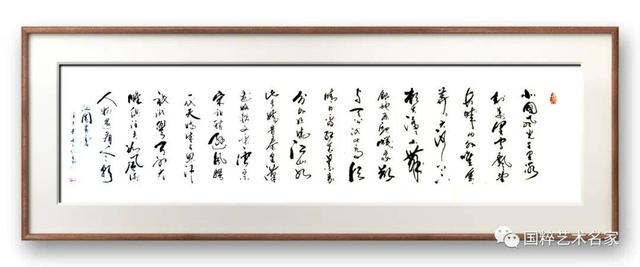 北国风光千里冰
封万里雪飘望
长城内外惟余
莽莽大河上下
顿失滔滔山舞
银蛇原驰蜡象欲
与天公试比高须
晴日看红装素裹
分外妖娆江山如
此多娇
略输文采唐宗
宋祖稍逊风骚
一代天骄成吉思汗
只识弯弓射大
雕俱往矣数风流
人物还看今朝
沁园春雪
国粹艺术名家